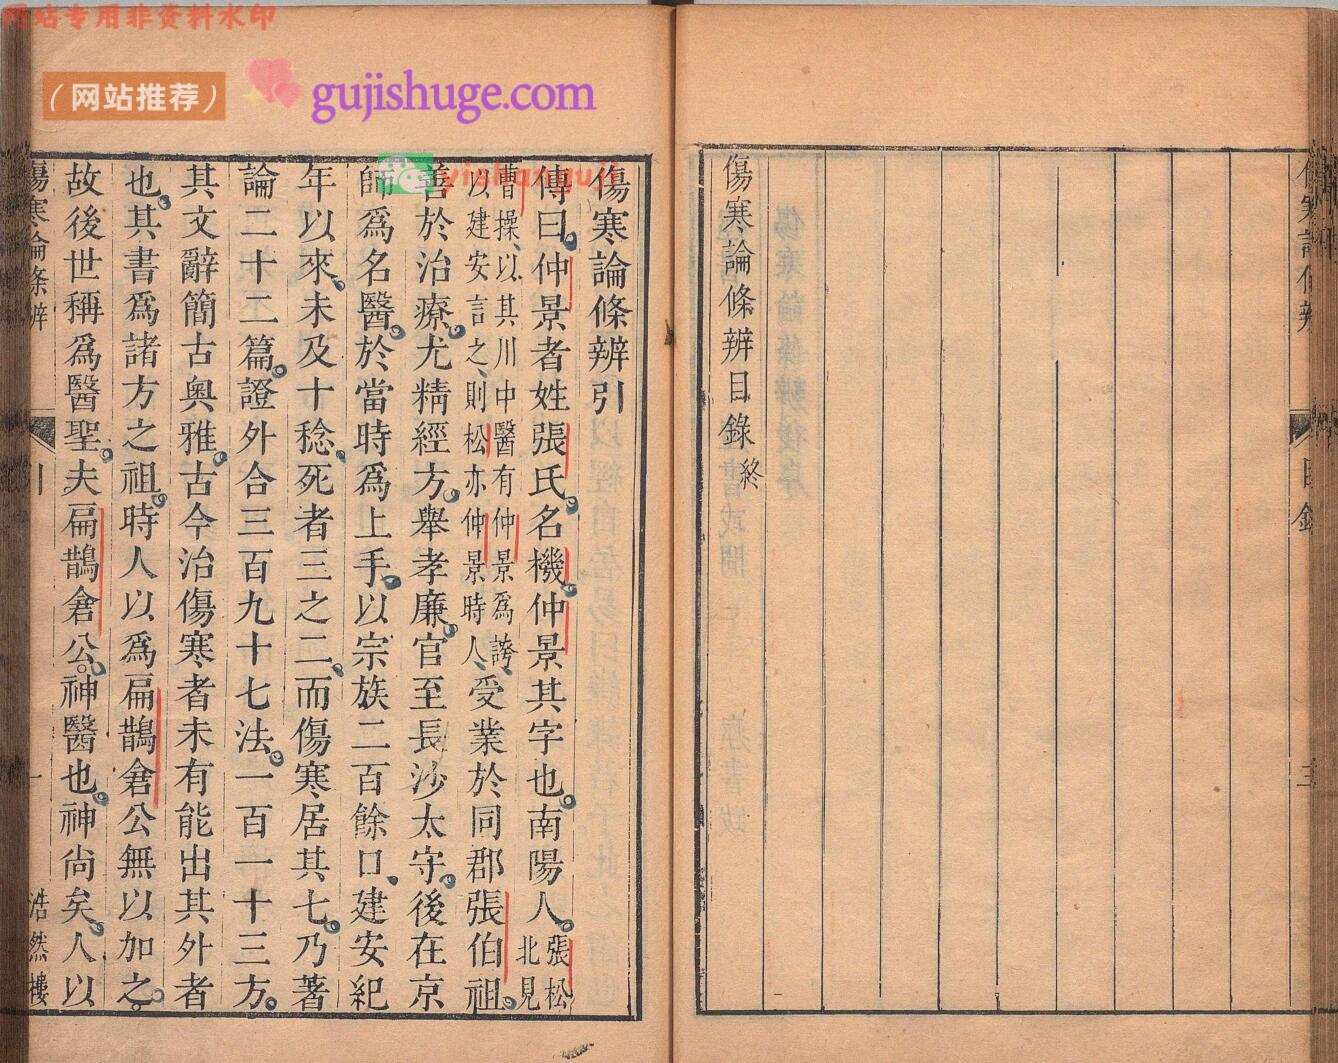 网站专用非资料水印
（网站推荐）
gujishuge.com
yishanguji
傷寒論條辨目錄終
目錄
三
傷寒論條辨引
傳曰仲景者姓張氏名機仲景其字也南陽人張松北見
曹操以其川中醫有仲景爲誇
以建安言之則松亦仲景時人受業於同郡張伯祖
善於治療尤精經方舉孝廉官至長沙太守後在京
師爲名醫於當時爲上手以宗族二百餘口建安紀
年以來未及十稔死者三之二而傷寒居其七乃著
論二十二篇證外合三百九十七法一百一十三方
其文辭簡古奧雅古今治傷寒者未有能出其外者
也其書爲諸方之祖時人以爲扁鵲倉公無以加之
故後世稱爲醫聖夫扁鵲倉公神醫也神尙矣人以
傷寒論條辨
引
一
浩然樓